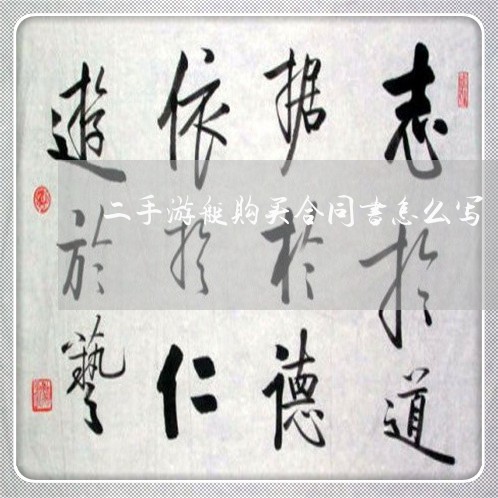 志於道
据於德
依於仁
遊於藝
二手游艇购买合同书怎么写